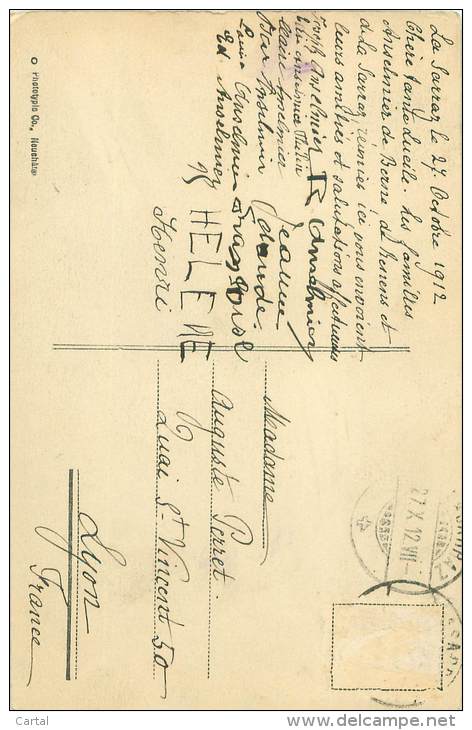 La Sarraz le 27. Octobre 1912
Chère tante Lucile. Les familles
Anselmier de Berne de Renens et
de La Sarraz, réunies ici vous envoient
leurs amitiés et salutations affectueuses
Joseph Anselmier
Anselmier
Jeanne
Claude.
Louise Anselmier
Ed. Anselmier
Françoise
HELENE
Henri
Madame
Auguste Perret.
Quai St Vincent 50
Lyon
France
27.X.12.VII-
Phototypie Co., Neuchâtel
Cartal
www.delcampe.net